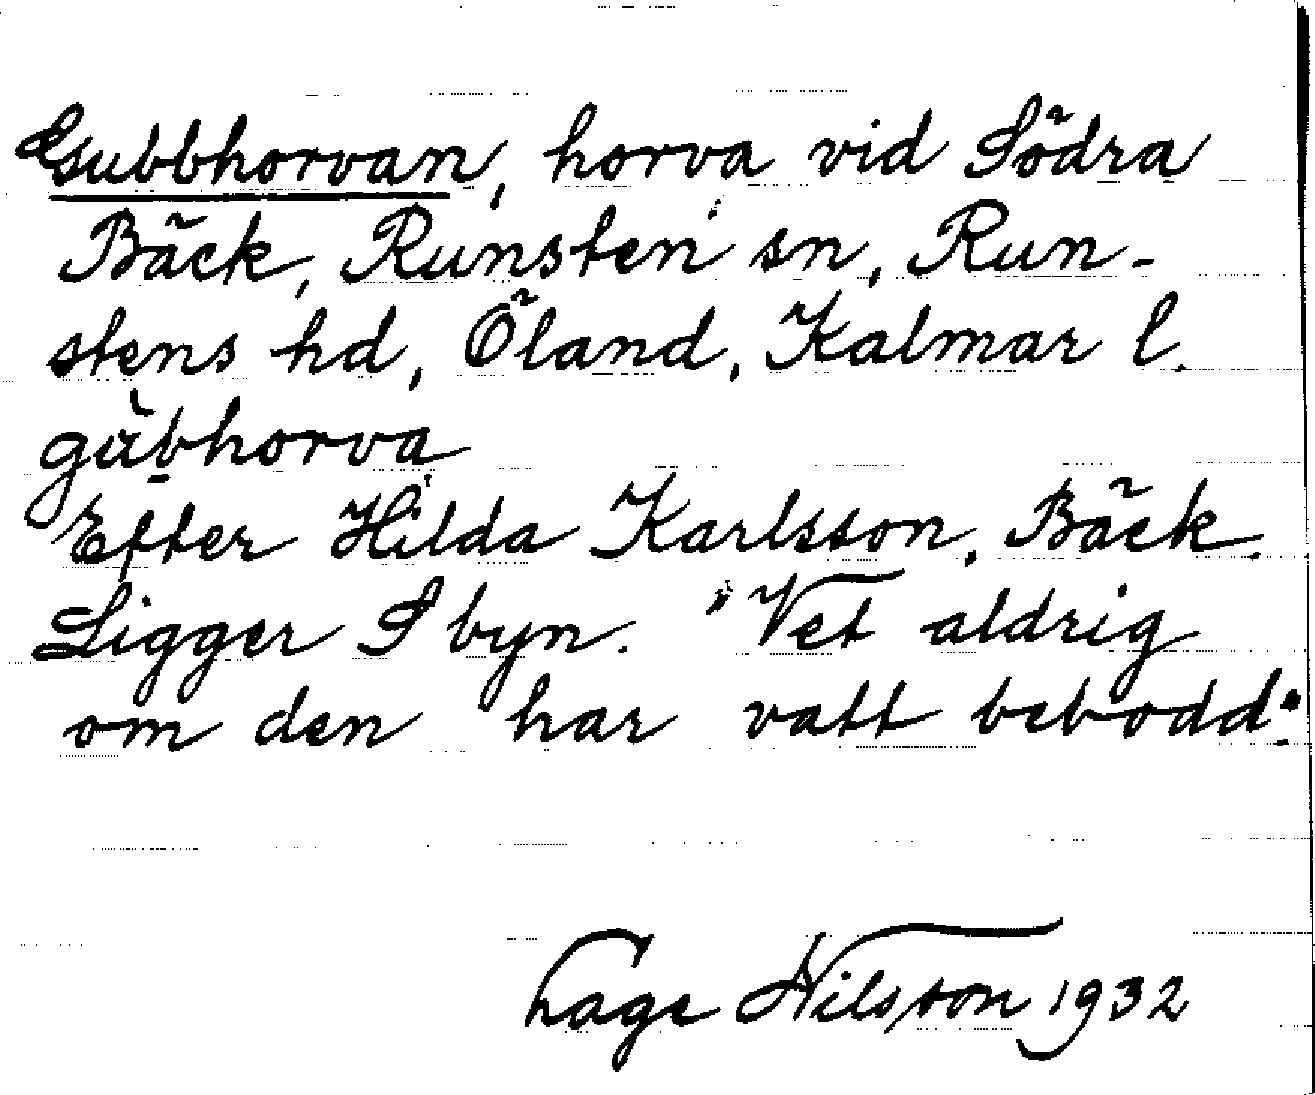 Gubbhorvan, horva vid Södra
Bäck, Runsten sn, Run-
stens hd, Öland, Kalmar l.
gùb̠horva
Efter Hilda Karlsson, Bäck.
Ligger S byn. "Vet aldrig
om den har vatt bebodd".
Tage Nilsson 1932